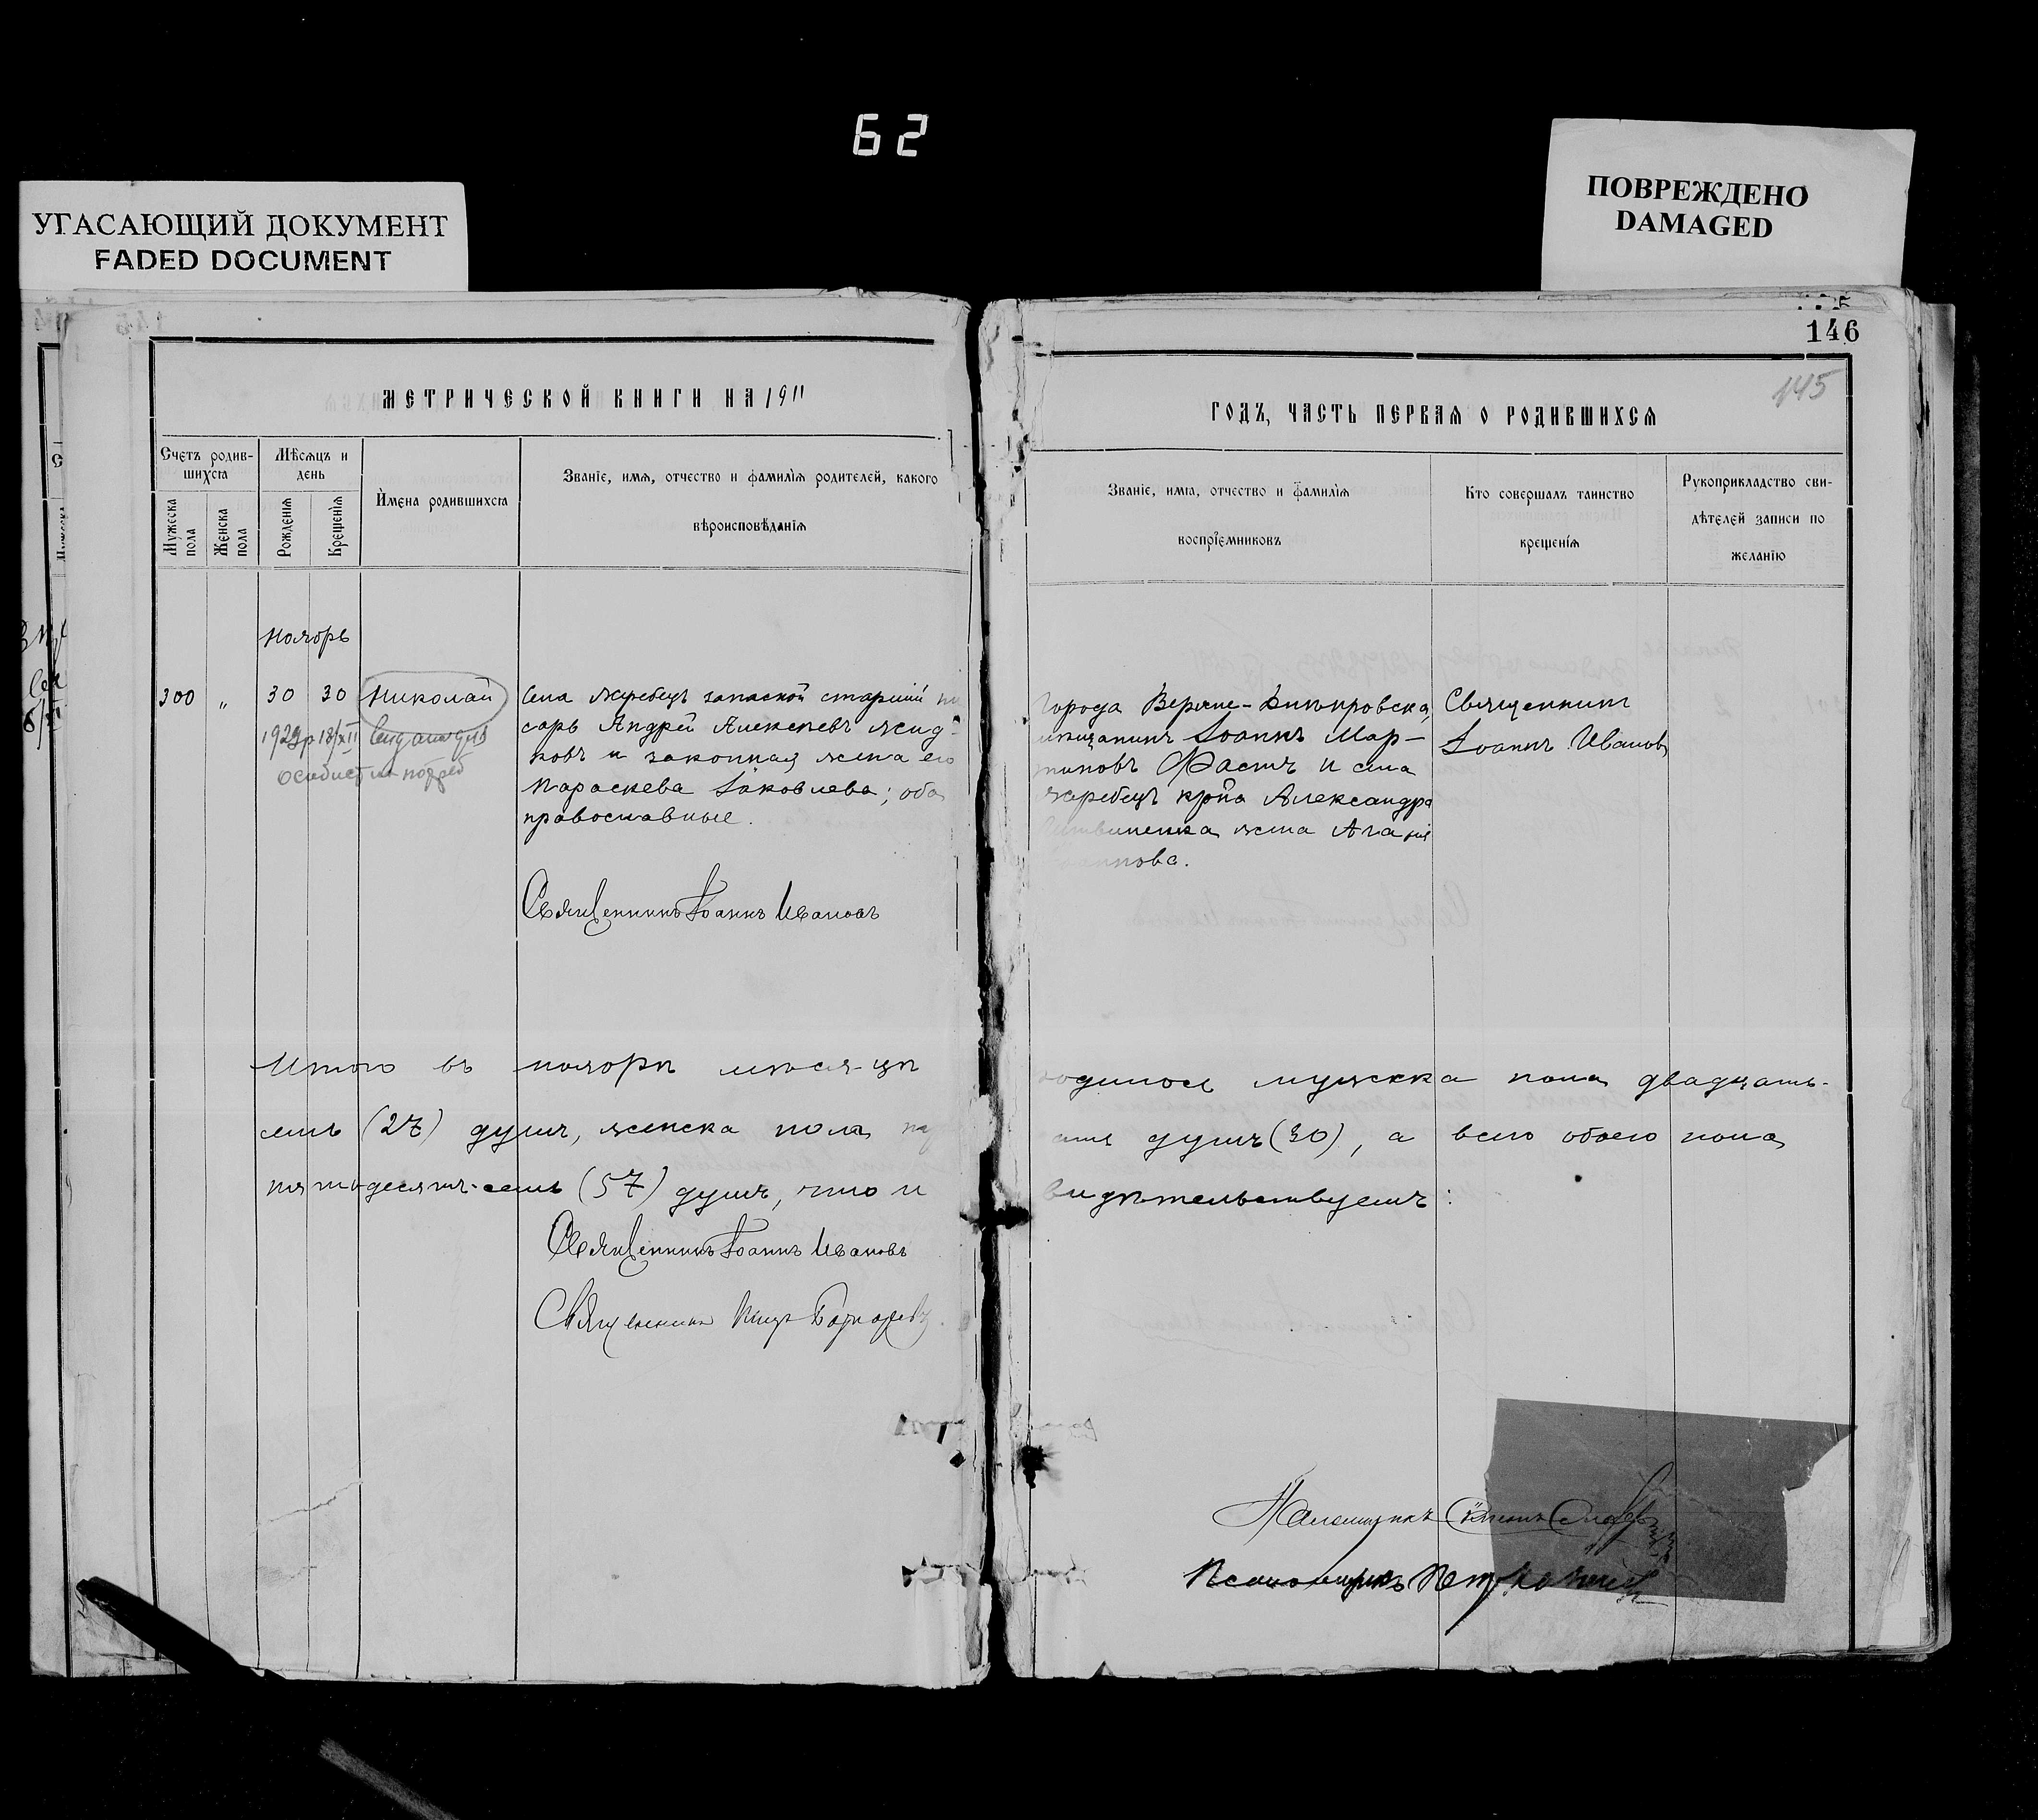 62
УГАСАЮЩИЙ ДОКУМЕНТ
FADED DOCUMENT
ПОВРЕЖДЕНО
DAMAGED
146
145
МЕТРИЧЕСКОЙ КНИГИ НА 1911
ГОДЪ, ЧАСТЬ ПЕРВАЯ О РОДИВШИХСЯ
Счетъ родив-
шихся
Мужеска пола
Женска пола
Мѣсяцъ и
день
Рожденія
Крещенія
Имена родившихся
Званіе, имя, отчество и фамилія родителей, какого
вѣроисповѣданія
Званіе, имя, отчество и фамилія
воспріемниковъ
Кто совершалъ таинство
крещенія
Рукоприкладство сви-
дѣтелей записи по
желанію
Ноябрь
300 " 30 30 Николай
1929р 18/XII
Села Жеребецъ запасной старшій пи
сарь Андрей Алексеевъ Жид-
ковъ и законная жена его
Параскева Іаковлева; оба
православные.
Священникъ Іоаннъ Ивановъ
Города Верхне-Днѣпровска,
мѣщанинъ Іоаннъ Мар-
тиновъ Фастъ и села
Жеребецъ кр̃на Александра
жена
Священникъ
Іоаннъ Ивановъ
Итого въ ноябрѣ мѣся-цѣ родилось мужеска пола двадцать-
семь (27) душъ, женска пола душъ (30), а всего обоего пола
пятьдесятъ-семь (57) душъ, что и свидѣтельствуемъ:
Священникъ Іоаннъ Ивановъ
Священникъ
Псаломщикъ
Псаломщикъ